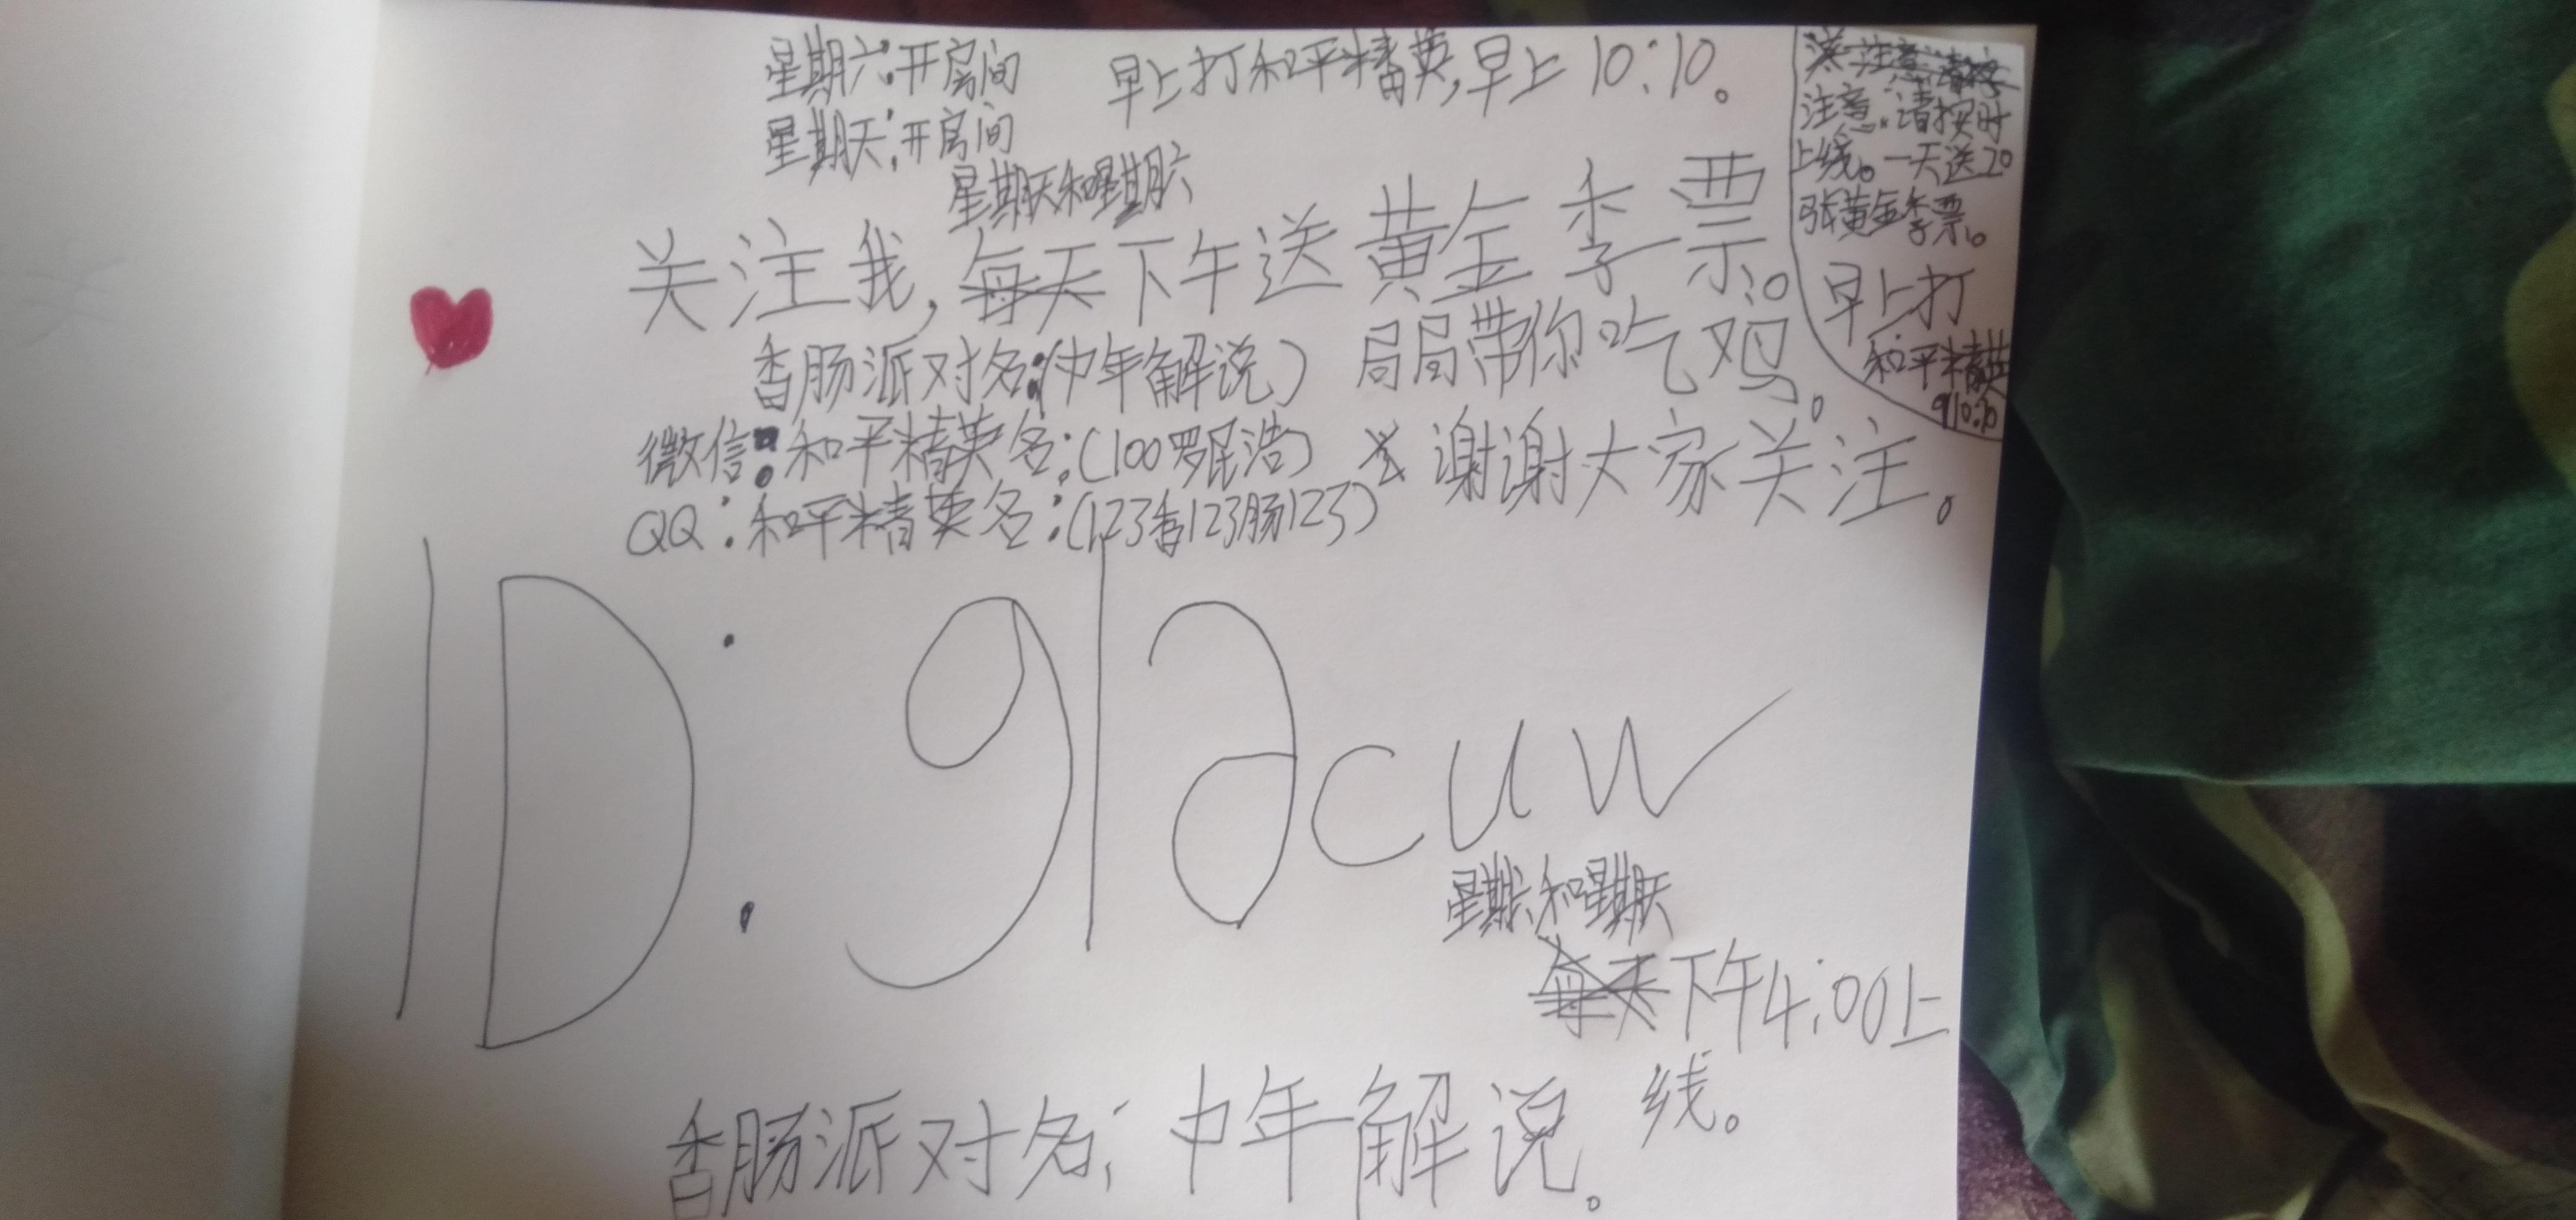 星期六:开房间
星期天:开房间
早上打和平精英,早上10:10。
星期天和星期六
关注我,每天下午送黄金季票。
香肠派对名:(中年解说) 局局带你吃鸡。
微信:和平精英名:(100罗昆浩) 谢谢大家关注。
QQ:和平精英名:(123香123肠123)
注意:请按时
上线。一天送20
张黄金季票。
早上打
和平精英
10:10
ID:912cuw
星期六和星期天
每天下午4:00上
线。
香肠派对名:中年解说。